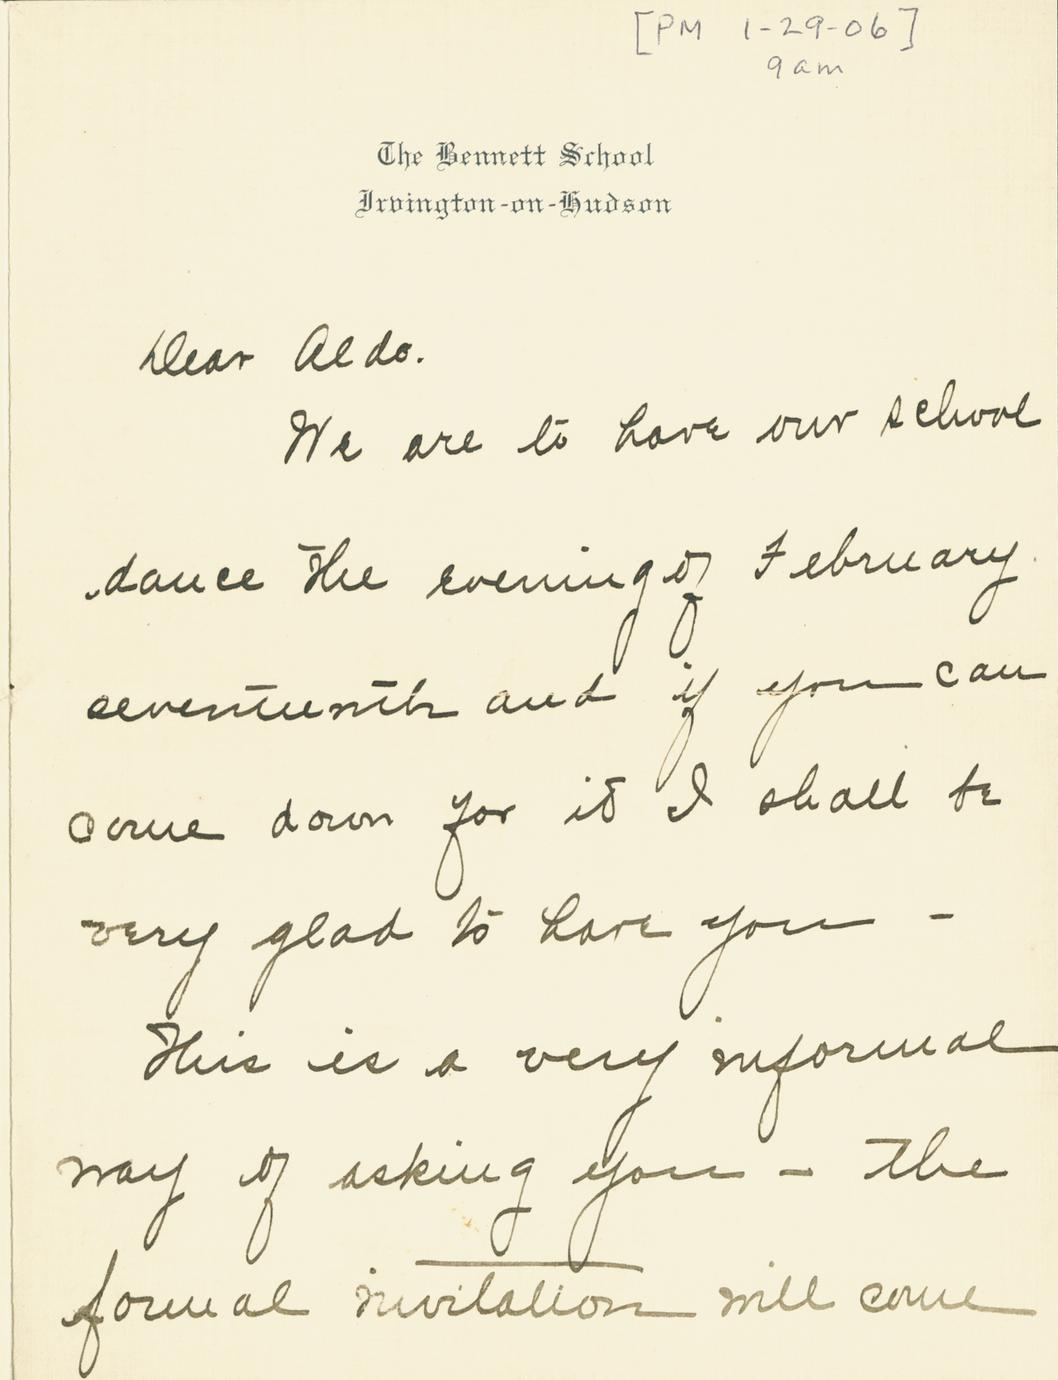 [PM 1-29-06]
9am
The Bennett School
Irvington-on-Hudson
Dear Aldo.
We are to have our school
dance the evening of February
seventeenth and if you can
come down for it I shall be
very glad to have you -
This is a very informal
way of asking you - the
formal invitation will come